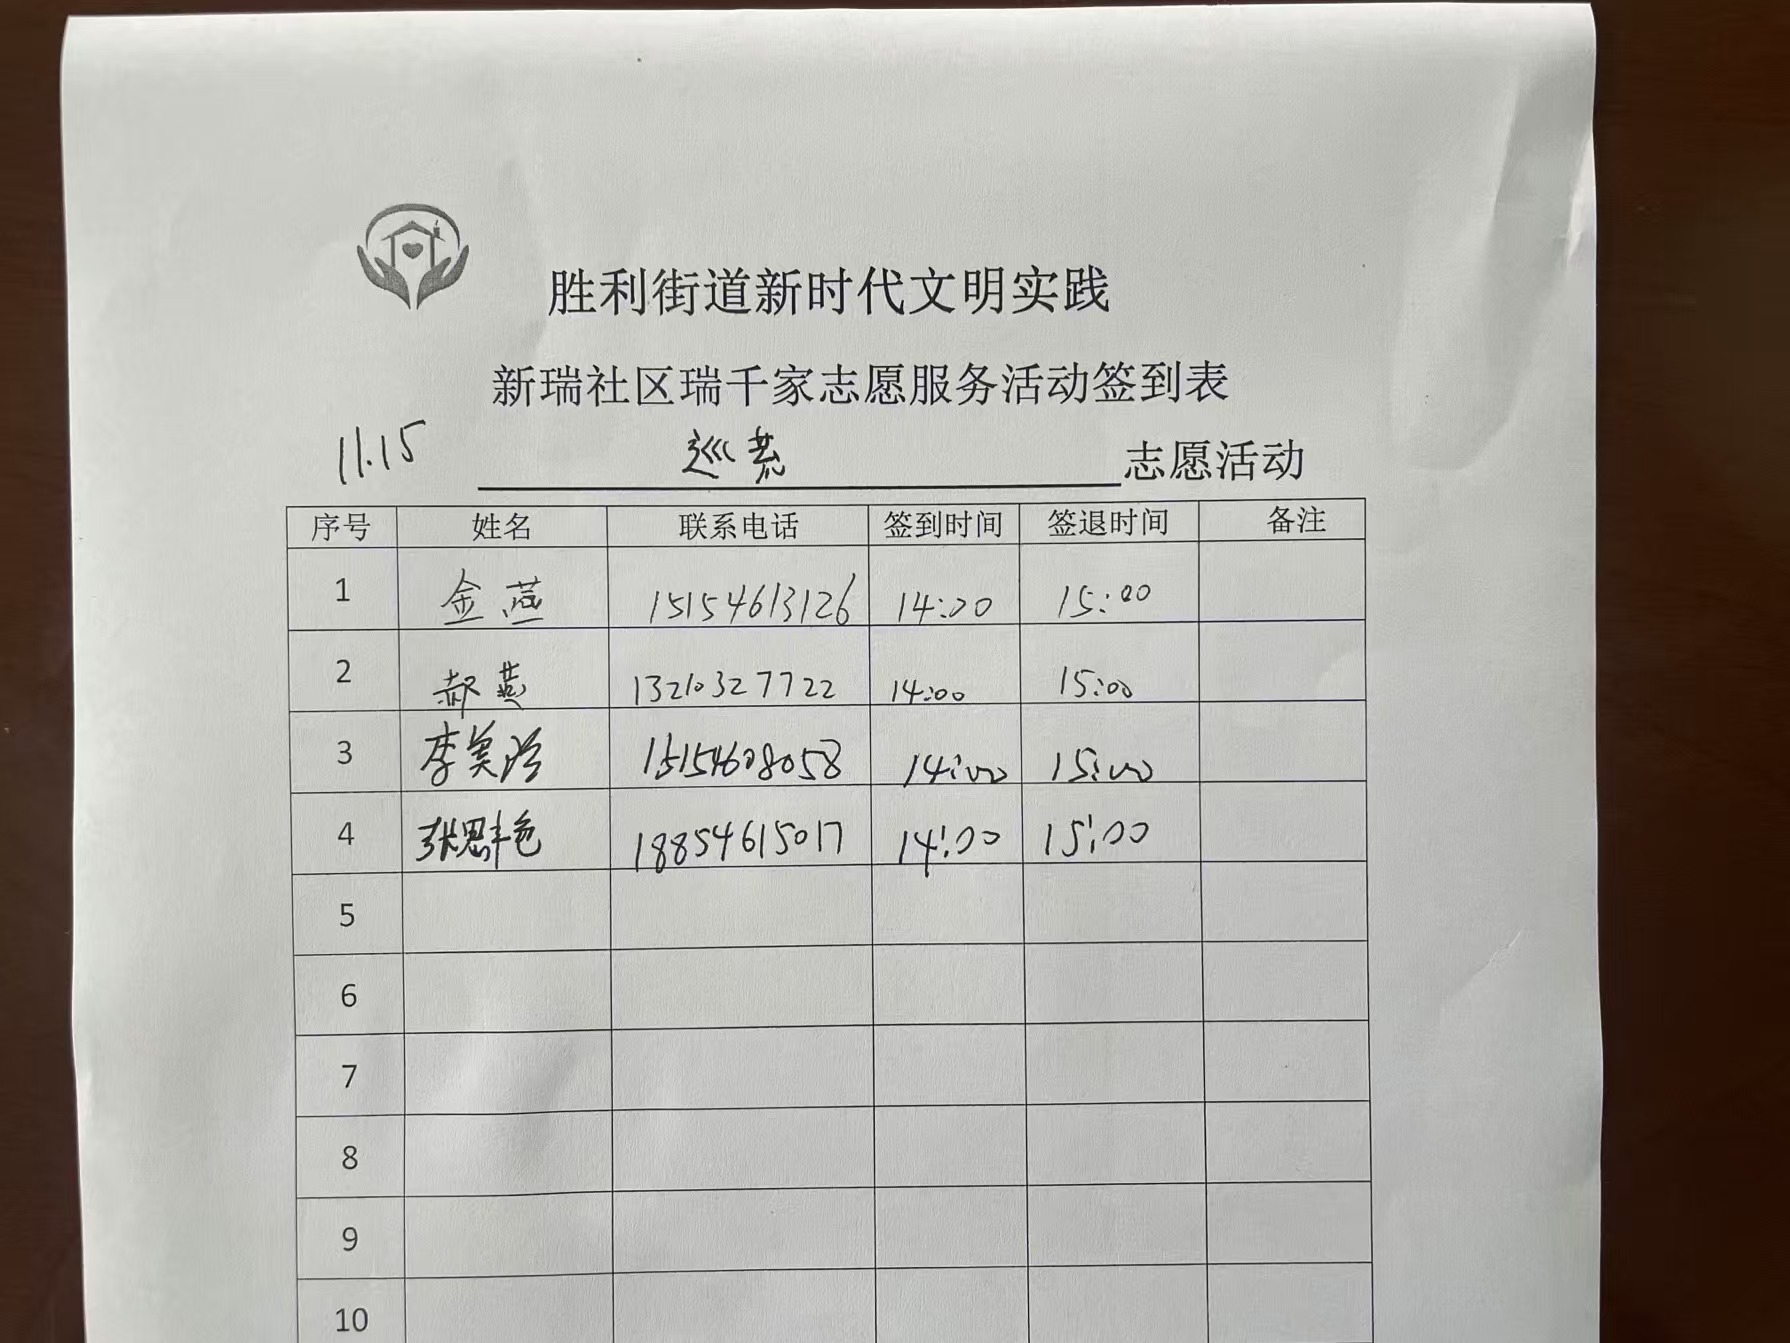 胜利街道新时代文明实践
新瑞社区瑞千家志愿服务活动签到表
11.15 巡 志愿活动
序号 姓名 联系电话 签到时间 签退时间 备注
1 金燕 15154613126 14:00 15:00
2 郝燕 13210327722 14:00 15:00
3 李美玲 15154608058 14:00 15:00
4 张思 18854615017 14:00 15:00
5
6
7
8
9
10